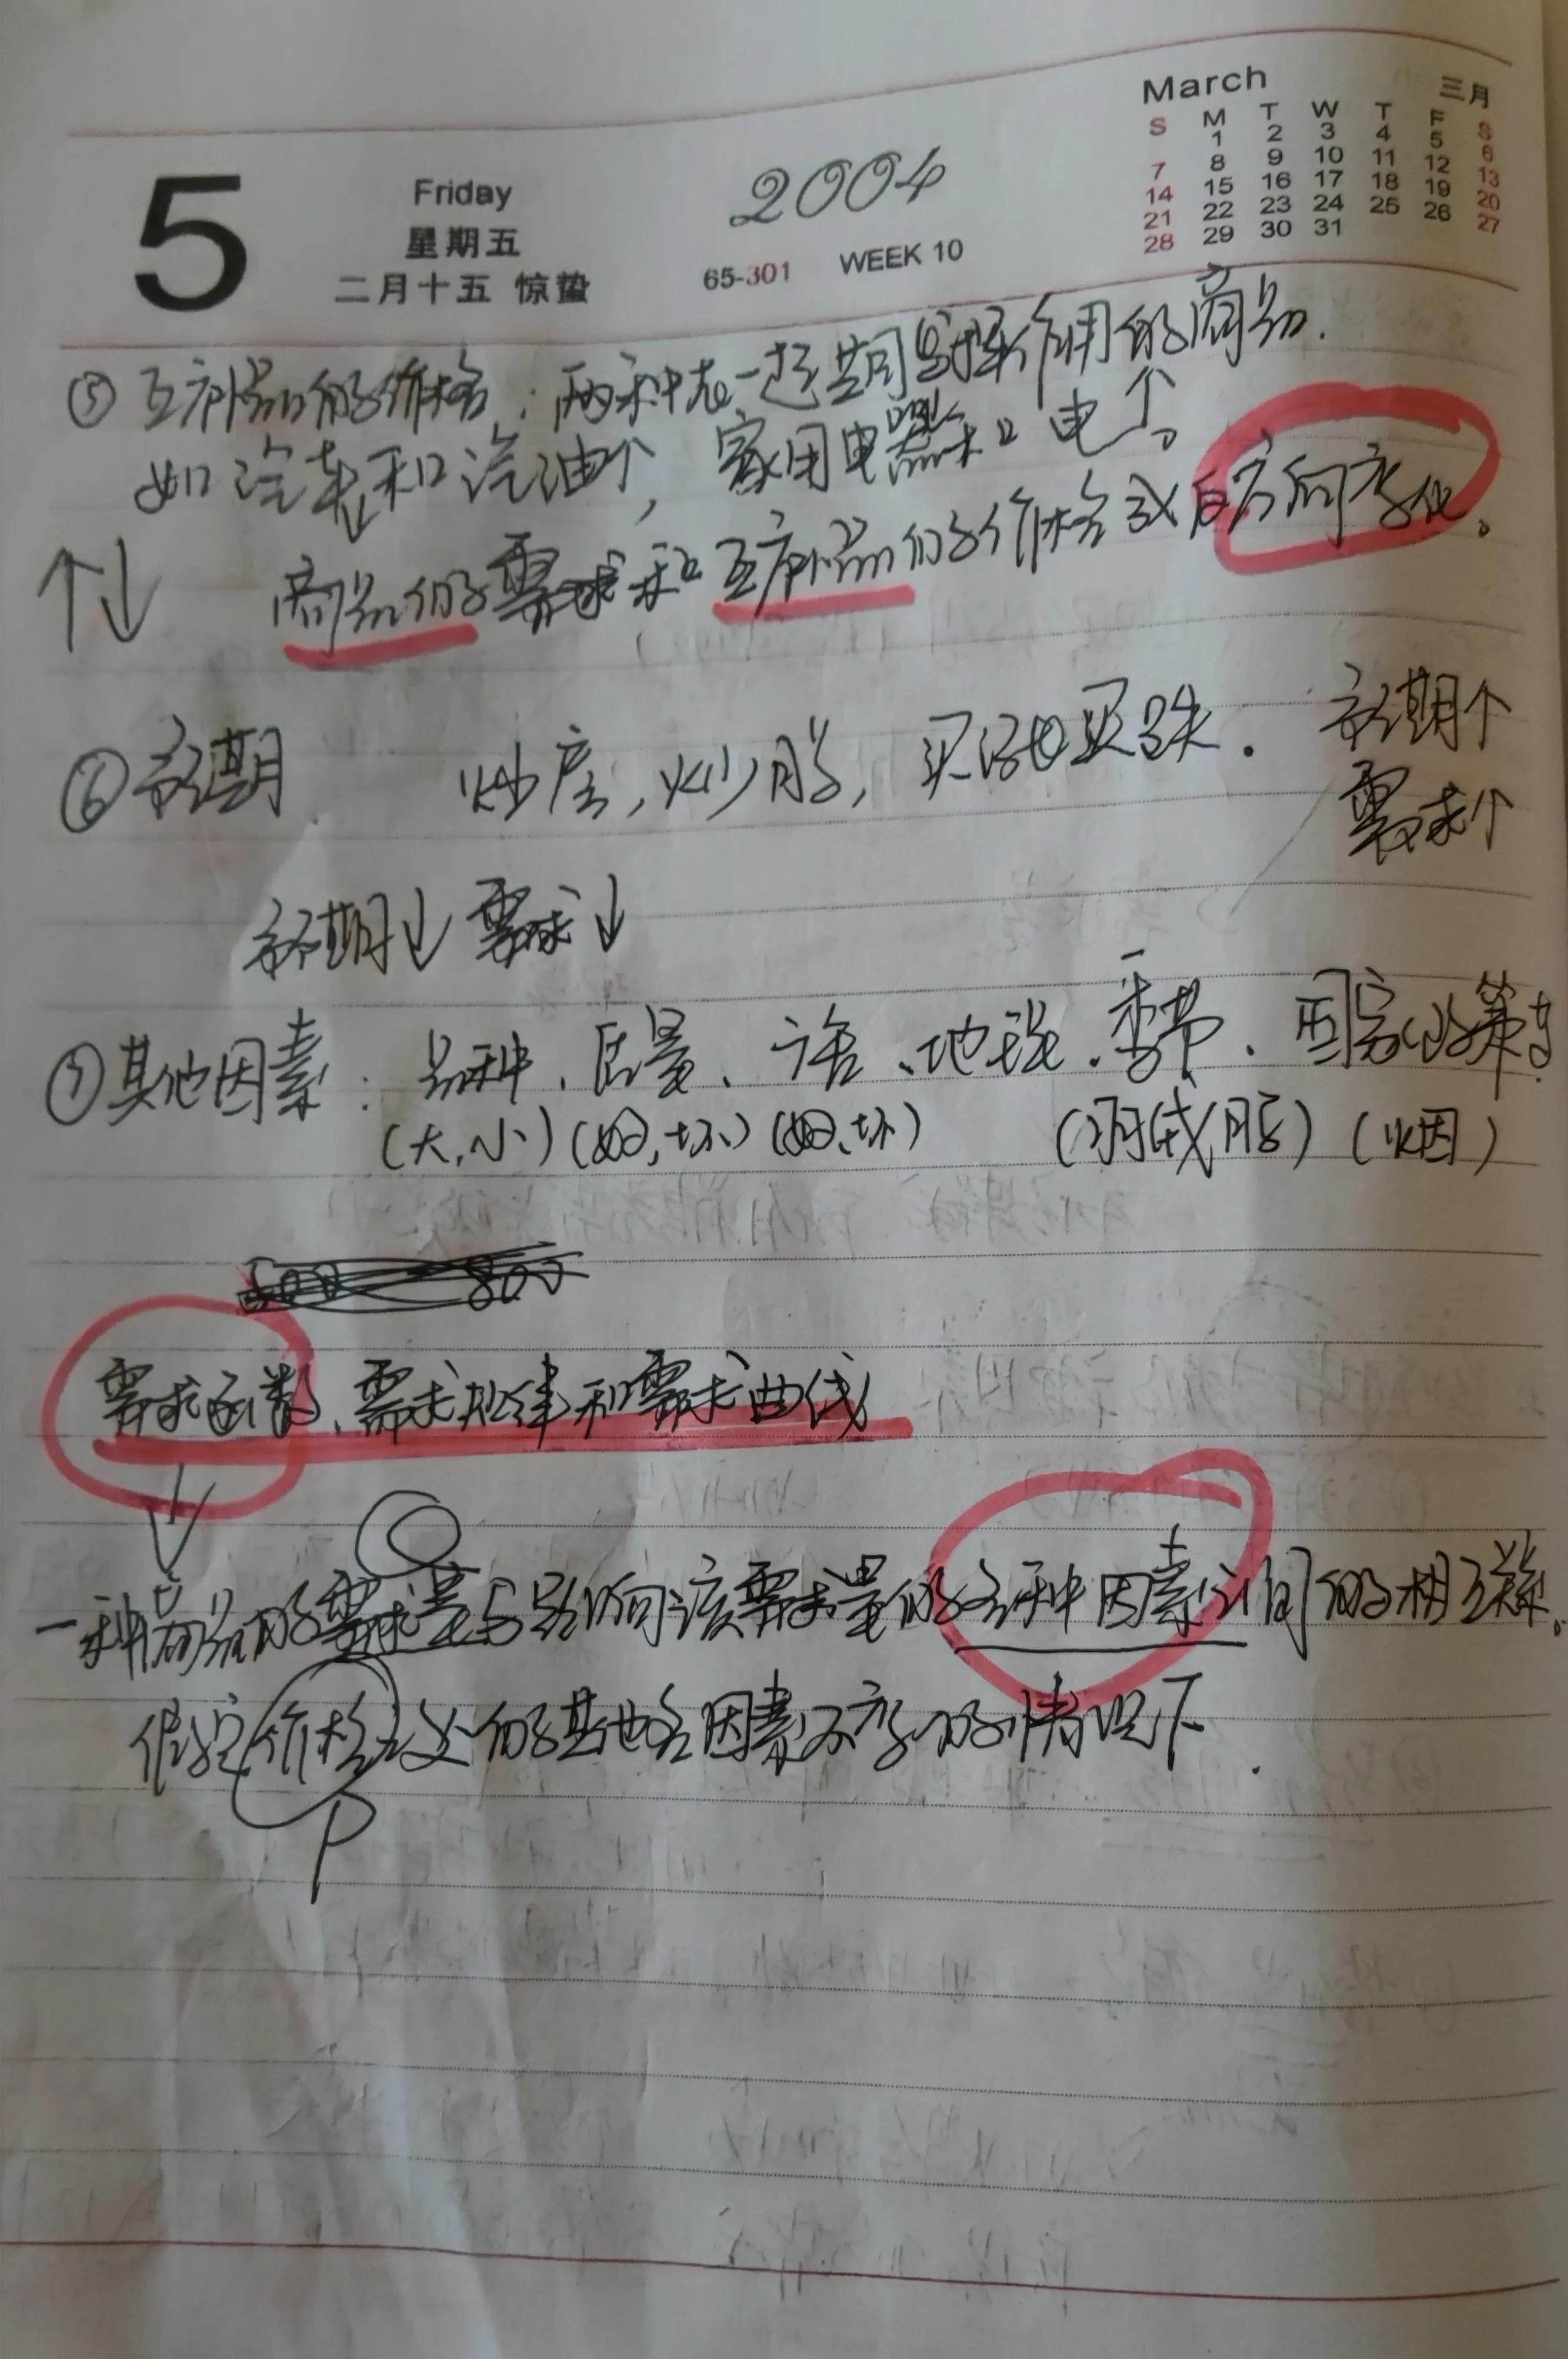 March 三月
S M T W T F S
1 2 3 4 5 6
7 8 9 10 11 12 13
14 15 16 17 18 19 20
21 22 23 24 25 26 27
28 29 30 31
5
Friday
星期五
二月十五 惊蛰
2004
65-301 WEEK 10
⑤ 互补品的价格:两种在一起共同发挥作用的商品.
如汽车↓和汽油↑,家用电器和电↑。
↑↓ 商品的需求和互补品的价格成反方向变化。
⑥ 预期. 炒房,炒股,买涨也买跌. 预期↑
需求↑
预期↓ 需求↓
⑦ 其他因素:品种、质量、广告、地理.季节.国家政策等.
(大,小)(好,坏)(好、坏) (羽绒服)(烟)
需求函数、需求规律和需求曲线
↓
一种商品的需求量与影响该需求量的各种因素之间的相互关系。
假定价格之外的其他各因素不变的情况下.
P